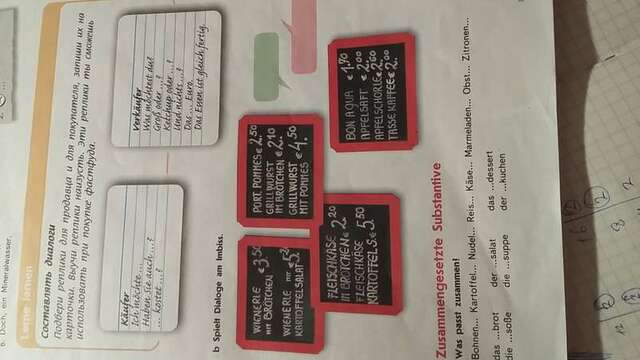 b Doch, ein Mineralwasser.
Lerne lernen
Составлять диалоги
Подбери реплики для продавца и для покупателя, запиши их на
карточки. Выучи реплики наизусть. Эти реплики ты сможешь
использовать при покупке фастфуда.
Käufer
Ich möchte ...
Haben Sie auch ...?
... kostet ...?
Verkäufer
Was möchtest du?
Groß oder ...?
Ketchup oder ...?
Und nichts ...?
Das ... Euro.
Das Essen ist gleich fertig.
b Spielt Dialoge am Imbiss.
WIENERLE
MIT BRÖTCHEN €3,50
WIENERLE MIT
KARTOFFELSALAT
PORT. POMMES €2,50
GRILLWURST
IM BRÖTCHEN €2,10
GRILLWURST
MIT POMMES €4,50
FLEISCHKÄSE
IM BRÖTCHEN €2,20
FLEISCHKÄSE
KARTOFFELS. €5,50
BON AQUA €1,70
APFELSAFT €2,00
APFELSCHORLE €2,60
TASSE KAFFEE €2,00
Zusammengesetzte Substantive
Was passt zusammen?
Bohnen... Kartoffel... Nudel... Reis... Käse... Marmeladen... Obst... Zitronen...
das ...brot der ...salat das ...dessert
die ...soße die ...suppe der ...kuchen